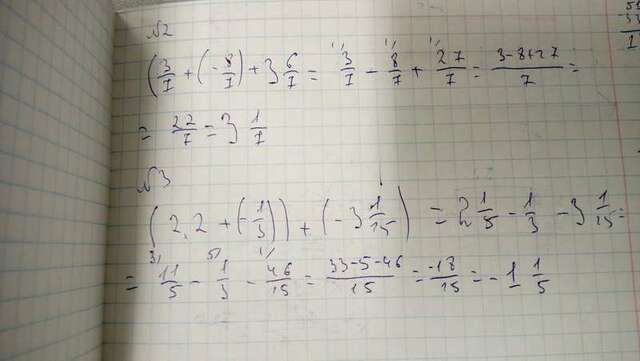 №2
(3/7 + (-8/7) + 3 6/7 = 3/7 - 8/7 + 27/7 = 3-8+27/7 =
= 22/7 = 3 1/7
№3
(2,2 + (-1/3)) + (-3 1/15) = 2 1/5 - 1/3 - 3 1/15 =
= 11/5 - 1/3 - 46/15 = 33-5-46/15 = -18/15 = -1 1/5